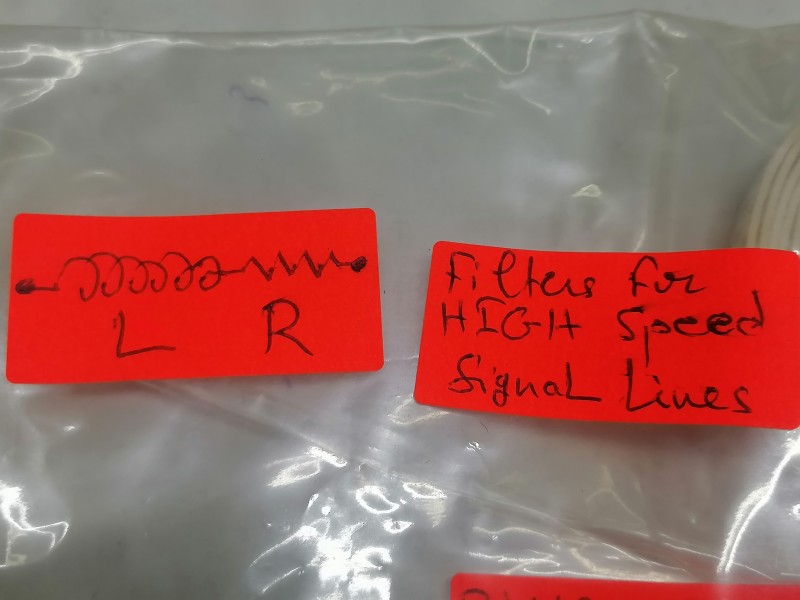 L R
Filters for
HIGH Speed
Signal Lines